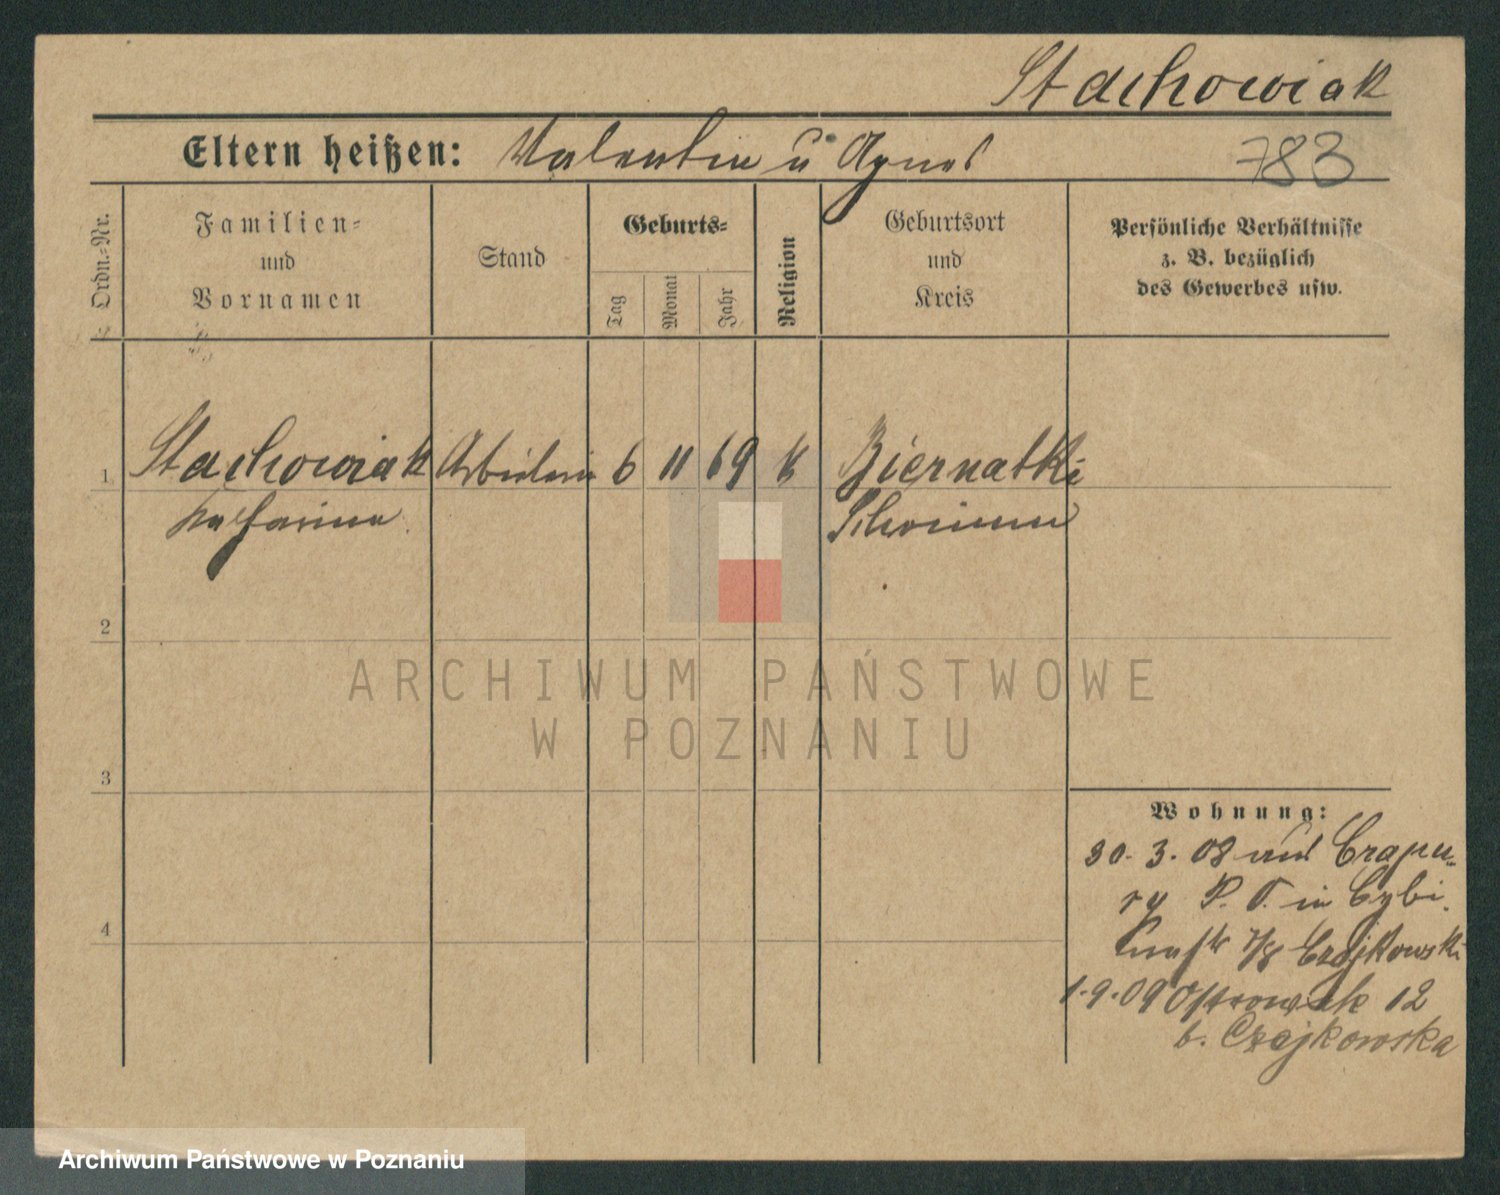 Stachowiak
Eltern heißen: Valentin u Agnes
783
Ordn.-Nr.
Familien-
und
Vornamen
Stand
Geburts-
Tag
Monat
Jahr
Religion
Geburtsort
und
Kreis
Persönliche Verhältnisse
z. B. bezüglich
des Gewerbes usw.
1 Stachowiak Arbeiterin 6 11 69 k Biernatki
Katharina Schrimm
2
3
4
Wohnung:
30. 3. 08 aus Czapu-
ry P. O. in Cybi.
7/8 Czajkowski
1.9.09 Ostrowek 12
b. Czajkowska
ARCHIWUM PAŃSTWOWE
W POZNANIU
Archiwum Państwowe w Poznaniu